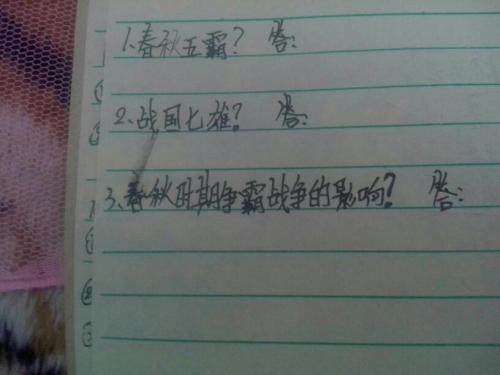 1、春秋五霸? 答:
2、战国七雄? 答:
3、春秋时期争霸战争的影响? 答: